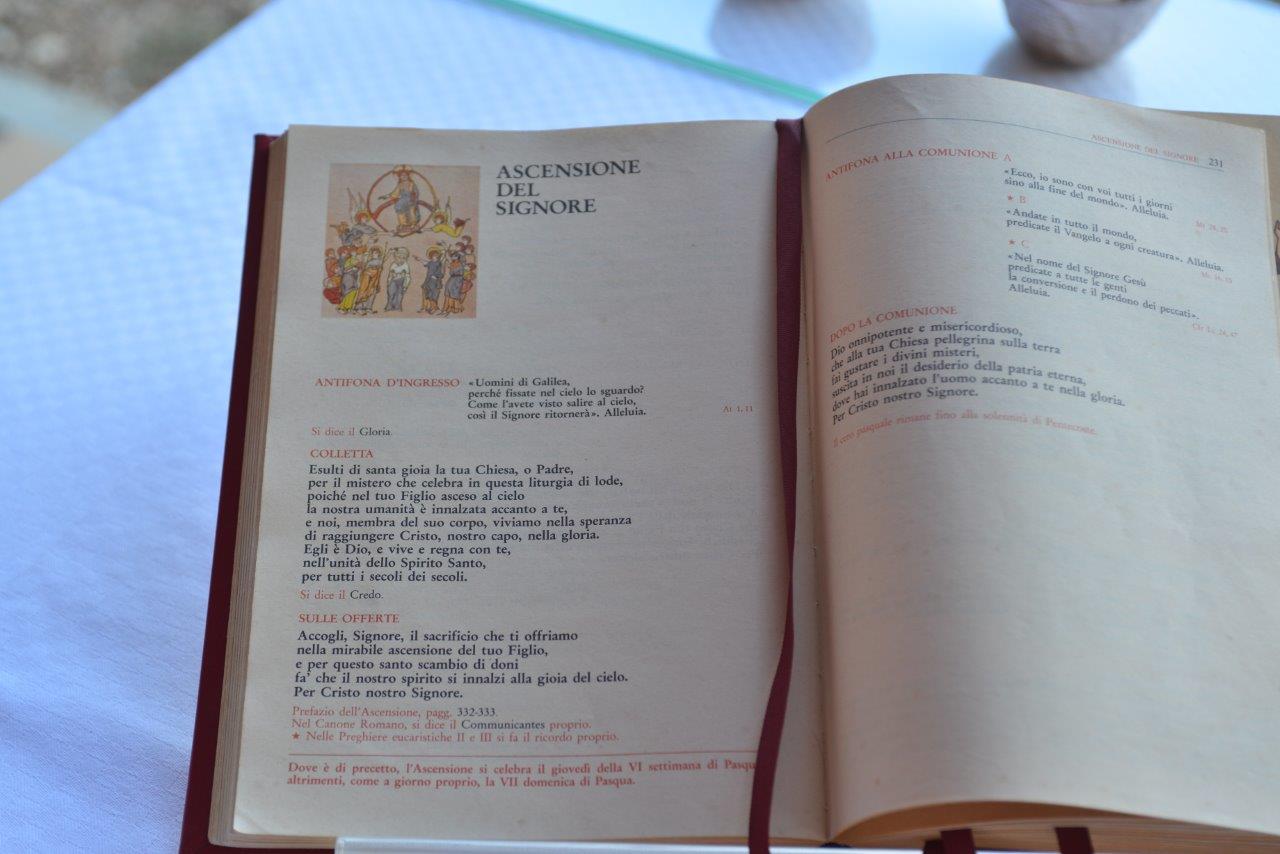 ASCENSIONE
DEL
SIGNORE
ANTIFONA D'INGRESSO «Uomini di Galilea,
perché fissate nel cielo lo sguardo?
Come l'avete visto salire al cielo,
così il Signore ritornerà». Alleluia. At 1, 11
Si dice il Gloria.
COLLETTA
Esulti di santa gioia la tua Chiesa, o Padre,
per il mistero che celebra in questa liturgia di lode,
poiché nel tuo Figlio asceso al cielo
la nostra umanità è innalzata accanto a te,
e noi, membra del suo corpo, viviamo nella speranza
di raggiungere Cristo, nostro capo, nella gloria.
Egli è Dio, e vive e regna con te,
nell'unità dello Spirito Santo,
per tutti i secoli dei secoli.
Si dice il Credo.
SULLE OFFERTE
Accogli, Signore, il sacrificio che ti offriamo
nella mirabile ascensione del tuo Figlio,
e per questo santo scambio di doni
fa' che il nostro spirito si innalzi alla gioia del cielo.
Per Cristo nostro Signore.
Prefazio dell'Ascensione, pagg. 332-333.
Nel Canone Romano, si dice il Communicantes proprio.
★ Nelle Preghiere eucaristiche II e III si fa il ricordo proprio.
Dove è di precetto, l'Ascensione si celebra il giovedì della VI settimana di Pasqu
altrimenti, come a giorno proprio, la VII domenica di Pasqua.
ASCENSIONE DEL SIGNORE 231
ANTIFONA ALLA COMUNIONE A
«Ecco, io sono con voi tutti i giorni
sino alla fine del mondo». Alleluia.
Mt 28, 20
★ B
«Andate in tutto il mondo,
predicate il Vangelo a ogni creatura». Alleluia.
Mc 16, 15
★ C
«Nel nome del Signore Gesù
predicate a tutte le genti
la conversione e il perdono dei peccati».
Alleluia.
Cfr Lc 24, 47
DOPO LA COMUNIONE
Dio onnipotente e misericordioso,
che alla tua Chiesa pellegrina sulla terra
fai gustare i divini misteri,
suscita in noi il desiderio della patria eterna,
dove hai innalzato l'uomo accanto a te nella gloria.
Per Cristo nostro Signore.
Il cero pasquale rimane fino alla solennità di Pentecoste.